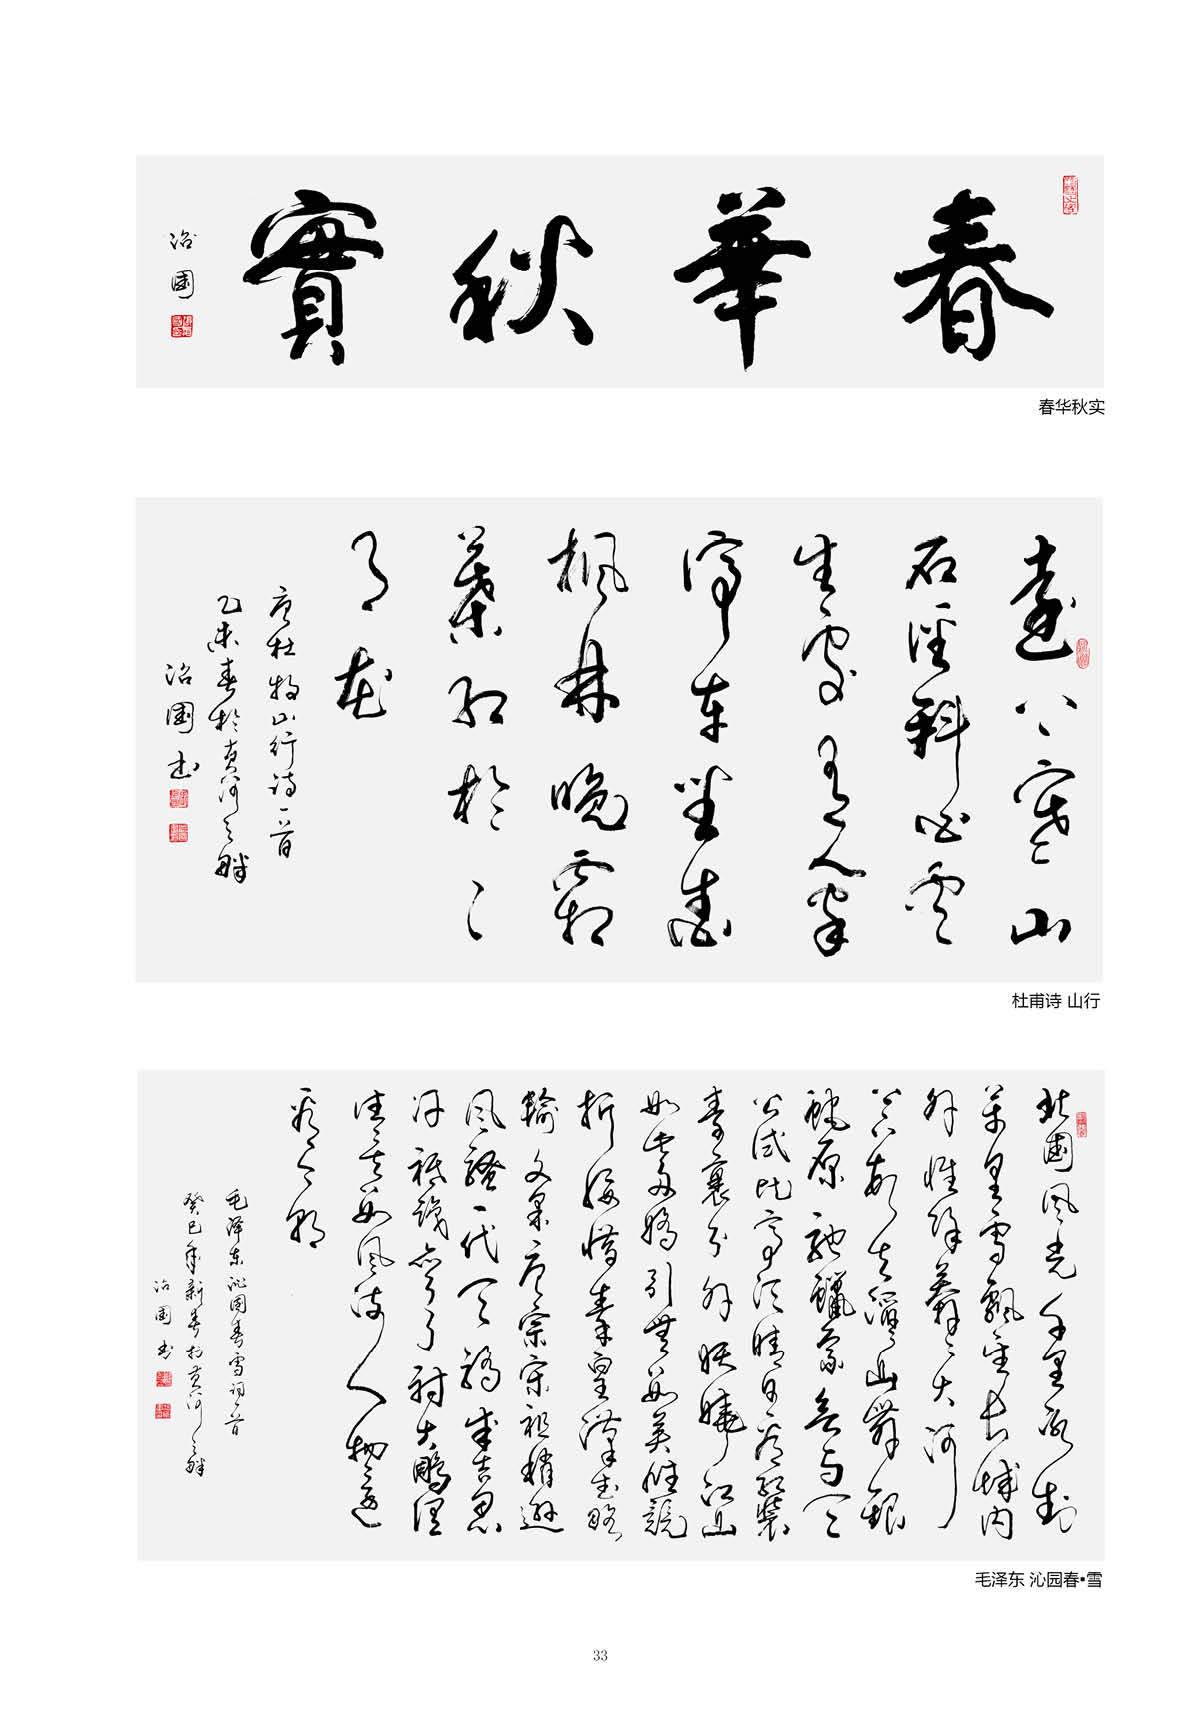 春華秋實
治國
春华秋实
遠上寒山
石徑斜白雲
生處有人家
停車坐愛
楓林晚霜
葉紅於二
月花
唐杜牧山行詩一首
乙未春於黄河之畔
治國书
杜甫诗 山行
北國風光千里冰封
萬里雪飄望長城内
外惟餘莽莽大河
上下頓失滔滔山舞銀
蛇原馳蠟象欲与天
公试比高須晴日看紅装
素裹分外妖嬈江山
如此多嬌引無數英雄競
折腰惜秦皇漢武略
輸文采唐宗宋祖稍遜
風騷一代天驕成吉思
汗祇識彎弓射大雕俱
往矣數風流人物還
看今朝
毛泽东沁園春雪詞一首
癸巳年新春於黄河之畔
治國书
毛泽东 沁园春•雪
33